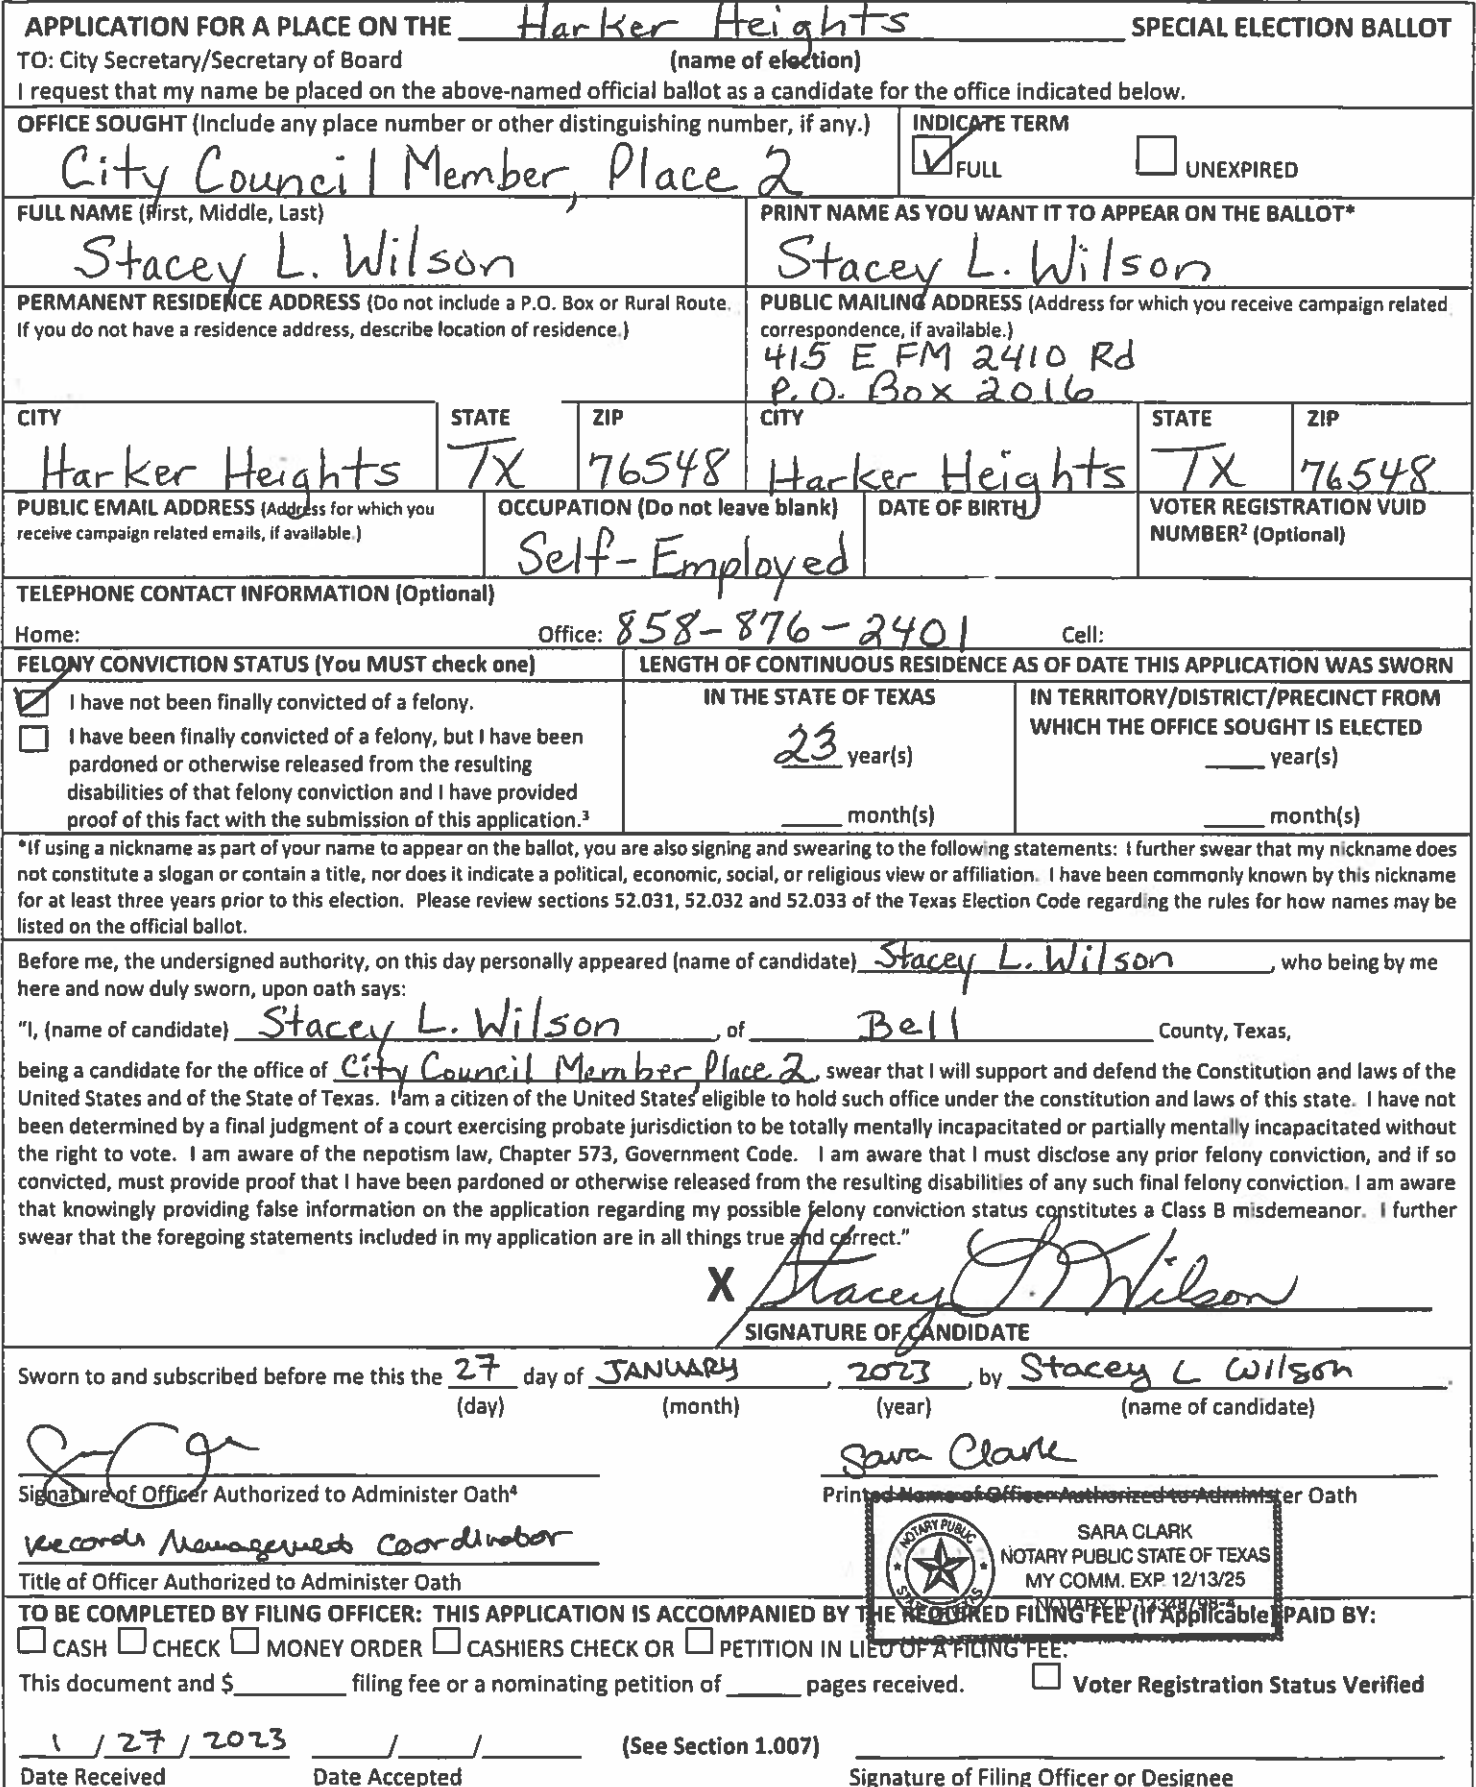 APPLICATION FOR A PLACE ON THE Harker Heights SPECIAL ELECTION BALLOT
TO: City Secretary/Secretary of Board (name of election)
I request that my name be placed on the above-named official ballot as a candidate for the office indicated below.
OFFICE SOUGHT (Include any place number or other distinguishing number, if any.) INDICATE TERM
City Council Member, Place 2 FULL UNEXPIRED
FULL NAME (First, Middle, Last) PRINT NAME AS YOU WANT IT TO APPEAR ON THE BALLOT*
Stacey L. Wilson Stacey L. Wilson
PERMANENT RESIDENCE ADDRESS (Do not include a P.O. Box or Rural Route. PUBLIC MAILING ADDRESS (Address for which you receive campaign related
If you do not have a residence address, describe location of residence.) correspondence, if available.)
415 E FM 2410 Rd
P.O. Box 2016
CITY STATE ZIP CITY STATE ZIP
Harker Heights TX 76548 Harker Heights TX 76548
PUBLIC EMAIL ADDRESS (Address for which you OCCUPATION (Do not leave blank) DATE OF BIRTH VOTER REGISTRATION VUID
receive campaign related emails, if available.) NUMBER² (Optional)
Self-Employed
TELEPHONE CONTACT INFORMATION (Optional)
Home: Office: 858-876-2401 Cell:
FELONY CONVICTION STATUS (You MUST check one) LENGTH OF CONTINUOUS RESIDENCE AS OF DATE THIS APPLICATION WAS SWORN
I have not been finally convicted of a felony. IN THE STATE OF TEXAS IN TERRITORY/DISTRICT/PRECINCT FROM
WHICH THE OFFICE SOUGHT IS ELECTED
I have been finally convicted of a felony, but I have been
pardoned or otherwise released from the resulting 23 year(s) year(s)
disabilities of that felony conviction and I have provided
proof of this fact with the submission of this application.³ month(s) month(s)
*If using a nickname as part of your name to appear on the ballot, you are also signing and swearing to the following statements: I further swear that my nickname does
not constitute a slogan or contain a title, nor does it indicate a political, economic, social, or religious view or affiliation. I have been commonly known by this nickname
for at least three years prior to this election. Please review sections 52.031, 52.032 and 52.033 of the Texas Election Code regarding the rules for how names may be
listed on the official ballot.
Before me, the undersigned authority, on this day personally appeared (name of candidate) Stacey L. Wilson, who being by me
here and now duly sworn, upon oath says:
"I, (name of candidate) Stacey L. Wilson, of Bell County, Texas,
being a candidate for the office of City Council Member, Place 2, swear that I will support and defend the Constitution and laws of the
United States and of the State of Texas. I am a citizen of the United States eligible to hold such office under the constitution and laws of this state. I have not
been determined by a final judgment of a court exercising probate jurisdiction to be totally mentally incapacitated or partially mentally incapacitated without
the right to vote. I am aware of the nepotism law, Chapter 573, Government Code. I am aware that I must disclose any prior felony conviction, and if so
convicted, must provide proof that I have been pardoned or otherwise released from the resulting disabilities of any such final felony conviction. I am aware
that knowingly providing false information on the application regarding my possible felony conviction status constitutes a Class B misdemeanor. I further
swear that the foregoing statements included in my application are in all things true and correct."
X Stacey L. Wilson
SIGNATURE OF CANDIDATE
Sworn to and subscribed before me this the 27 day of JANUARY, 2023, by Stacey L Wilson.
(day) (month) (year) (name of candidate)
Sara Clark
Signature of Officer Authorized to Administer Oath⁴ Printed Name of Officer Authorized to Administer Oath
Records Management Coordinator
Title of Officer Authorized to Administer Oath
NOTARY PUBLIC
SARA CLARK
NOTARY PUBLIC STATE OF TEXAS
MY COMM. EXP. 12/13/25
TO BE COMPLETED BY FILING OFFICER: THIS APPLICATION IS ACCOMPANIED BY THE REQUIRED FILING FEE (If Applicable) PAID BY:
CASH CHECK MONEY ORDER CASHIERS CHECK OR PETITION IN LIEU OF A FILING FEE.
This document and $ filing fee or a nominating petition of pages received. Voter Registration Status Verified
1 / 27 / 2023 / / (See Section 1.007)
Date Received Date Accepted Signature of Filing Officer or Designee